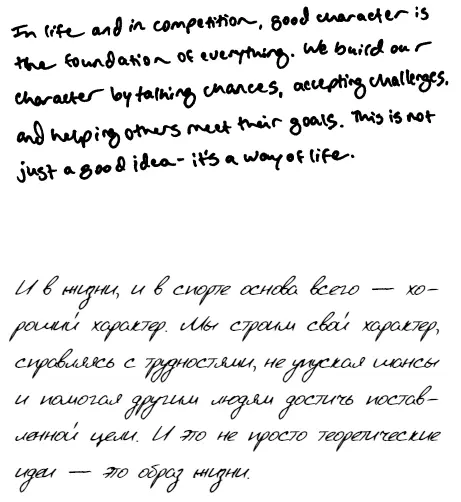 In life and in competition, good character is
the foundation of everything. We build our
character by talking chances, accepting challenges,
and helping others meet their goals. This is not
just a good idea - it's a way of life.
И в жизни, и в спорте основа всего — хо-
роший характер. Мы строим свой характер,
справляясь с трудностями, не упуская шансы
и помогая другим людям достичь постав-
ленной цели. И это не просто теоретические
идеи — это образ жизни.